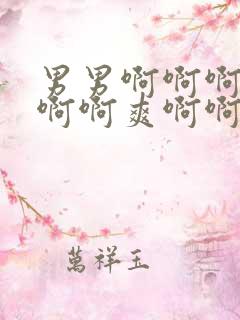 男男啊啊啊
啊啊爽啊啊
萬祥玉